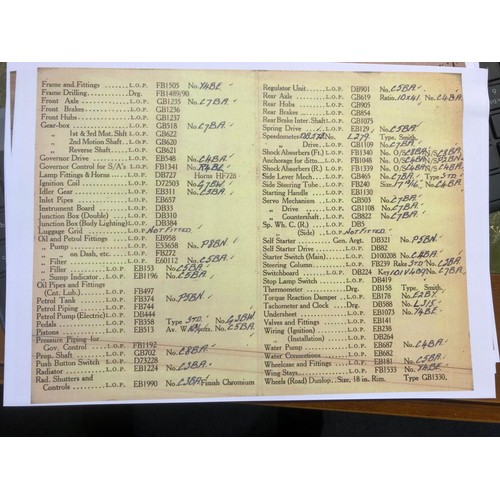 Frame and Fittings L.O.P. FB1505 No. Y4BE
Frame Drilling Drg. FB1489/90
Front Axle L.O.P. GB1235 No. C7BA
Front Brakes L.O.P. GB1236
Front Hubs L.O.P. GB1237
Gear-box L.O.P. GB518 No. C7BA
1st & 3rd Mot. Shft L.O.P. GB622
" 2nd Motion Shaft L.O.P. GB620
" Reverse Shaft L.O.P. GB621
Governor Drive L.O.P. EB548 No. C4BA
Governor Control for S/A's L.O.P. FB1341 No. R4BE
Lamp Fittings & Horns L.O.P. DB727 Horns HF728
Ignition Coil L.O.P. D72503 No. G7BW
Idler Gear L.O.P. EB311 No. C5BA
Inlet Pipes L.O.P. EB657
Instrument Board L.O.P. DB33
Junction Box (Double) L.O.P. DB310
Junction Box (Body Lighting) L.O.P. DB384
Luggage Grid NOT FITTED
Oil and Petrol Fittings L.O.P. EB958
" Pump L.O.P. E53658 No. P8BN
" on Dash, etc. L.O.P. FB272
" Base L.O.P. EB0112 No. C5BA
" Filler L.O.P. EB153 No. C5BA
" Sump Indicator L.O.P. EB1196 No. C5BA
Oil Pipes and Fittings
(Cnt. Lub.) L.O.P. FB497
Petrol Tank L.O.P. FB374 No. P5BN
Petrol Piping L.O.P. GB744
Petrol Pump (Electric) L.O.P. DB444
Pedals L.O.P. FB358 Type STD. No. G3BW
Pistons L.O.P. EB513 Av. W. ozs. No. C5BA
Pressure Piping for
Gov. Control L.O.P. FB1192
Prop. Shaft L.O.P. GB702 No. E8BA
Push Button Switch L.O.P. D73228
Radiator L.O.P. EB1224 No. C3BA
Rad. Shutters and
Controls L.O.P. EB1990 No. C3BA Finish Chromium
Regulator Unit L.O.P. DB901 No. C5BA
Rear Axle L.O.P. GB619 Ratio. 10x41 No. C4BA
Rear Hubs L.O.P. GB905
Rear Brakes L.O.P. GB854
Rear Brake Inter. Shaft L.O.P. GB1075
Spring Drive L.O.P. EB129 No. C5BA
Speedometer L279 Type. Smith.
" Drive L.O.P. GB1109 No. C7BA
Shock Absorbers (Ft.) L.O.P. FB1340 No. O/SC5BA N/SC5BA
Anchorage for ditto L.O.P. FB1048 No.
Shock Absorbers (R.) L.O.P. FB1339 No.
Side Lever Mech. L.O.P. GB465 No. C7BA Type STD
Side Steering Tube L.O.P. FB240 Size 17 9/16 No. C4BA
Starting Handle L.O.P. EB1130
Servo Mechanism L.O.P. GB503 No. C7BA
" Drive L.O.P. GB1108 No. C7BA
" Countershaft L.O.P. GB822 No. C7BA
Sp. Wh. C. (R.) L.O.P. DB5
" (Side) L.O.P. NOT FITTED
Self Starter Gen. Argt. DB321 No. P5BN
Self Starter Drive L.O.P. DB82
Starter Switch (Main) L.O.P. D100208 No. C4BA
Steering Column L.O.P. FB239 Rake STD No. C2BA
Switchboard L.O.P. DB224 Key 101V409 No. L7BA
Stop Lamp Switch L.O.P. DB419
Thermometer Drg. DB158 Type Smith.
Torque Reaction Damper L.O.P. EB178 No. E2BY
Tachometer and Clock L.O.P. DB588 No. L315
Undersheet L.O.P. EB1073 No. Y4BE
Valves and Fittings L.O.P. EB141
Wiring (Ignition) L.O.P. EB238
" (Installation) L.O.P. DB264
Water Pump L.O.P. EB687 No. C4BA
Water Connections L.O.P. EB682
Wheelcase and Fittings L.O.P. EB181 No. C5BA
Wing Stays L.O.P. FB1533 No. Y4BE
Wheels (Road) Dunlop. Size, 18 in. Rim. Type GB1330.